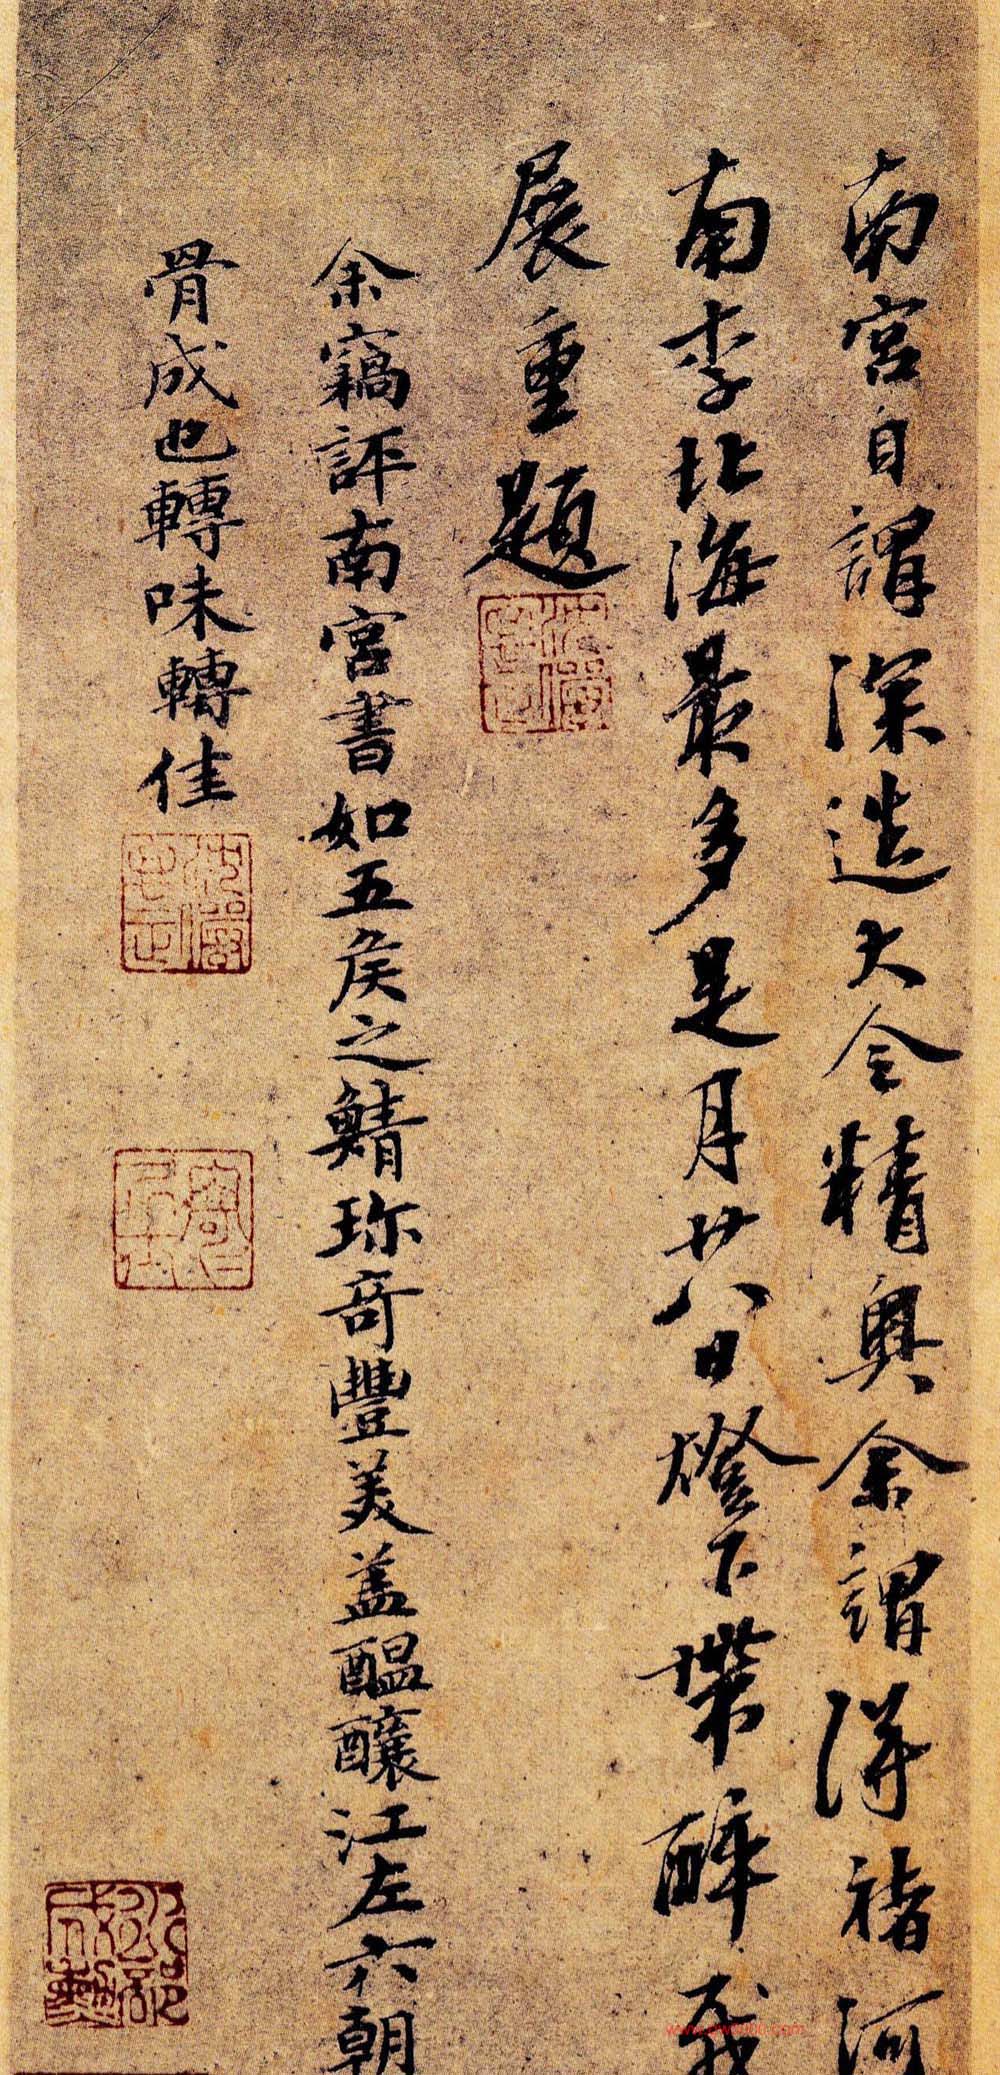 南宮自謂深造大令精奧余謂得褚河
南李北海最多是月廿八日燈下帶醉
展重題
余竊評南宮書如五侯之鯖珎奇豐美盖醞釀江左六朝
骨成也轉味轉佳